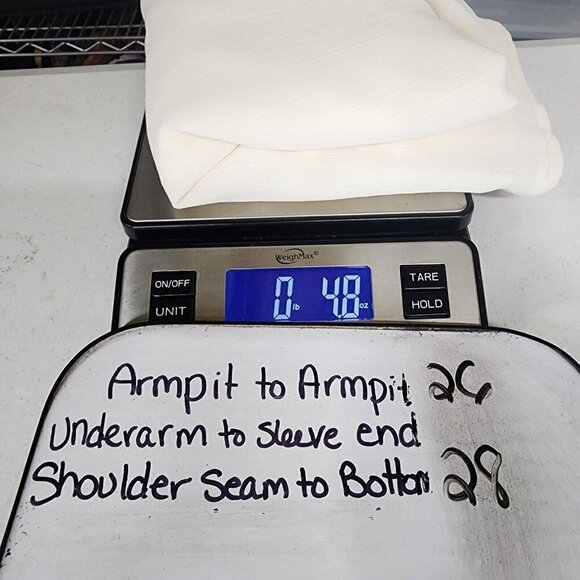 WeighMax®
ON/OFF
TARE
0 lb 4.8 oz
UNIT
HOLD
Armpit to Armpit 26
Underarm to sleeve end
Shoulder Seam to Bottom 28